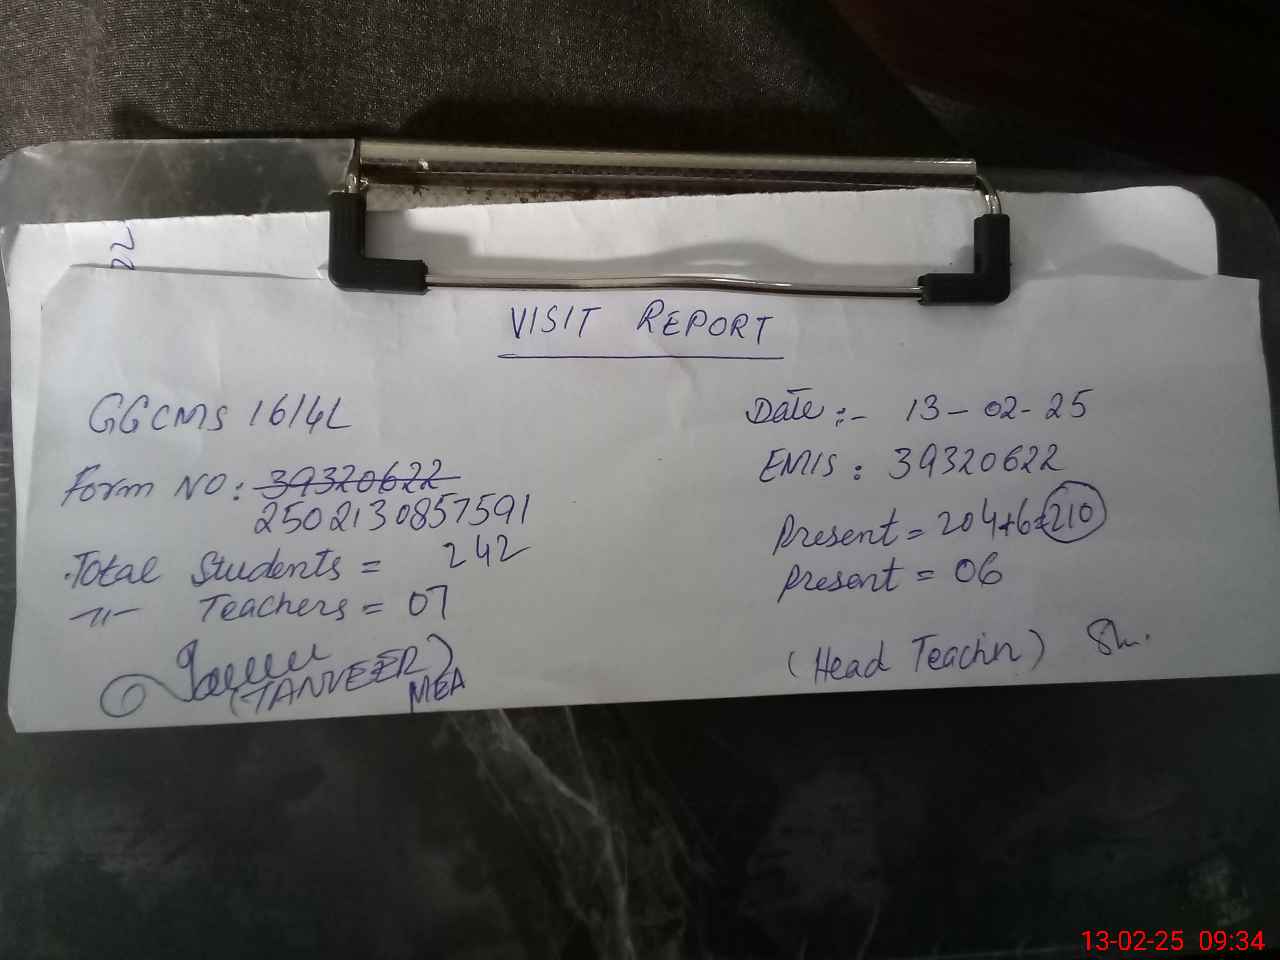 22
VISIT REPORT
GGCMS 16/4L
Date :- 13-02-25
Form NO: 39320622
EMIS: 39320622
2502130857591
Present = 204+6=210
Total Students = 242
Present = 06
-11- Teachers = 07
(TANVEER)
MEA
(Head Teacher)
13-02-25 09:34